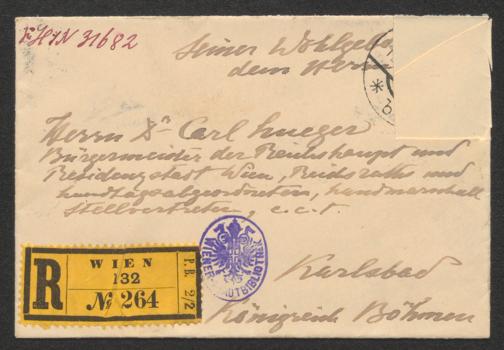 I.H.I.N 31682
Seiner Wohlgebo
dem Herrn
Herrn Dr Carl Lueger
Bürgermeister der Reichshaupt und
Residenzstadt Wien, Reichsraths und
Landtagsabgeordneten, Landmarschall
Stellvertreter, e.c.t.
Karlsbad
Königreich Böhmen
R
WIEN
132
№ 264
P. B. 2/2
WIENER STADTBIBLIOTHEK